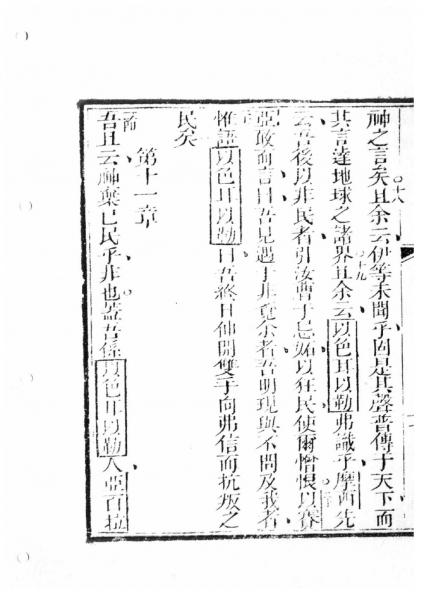 神之言矣○十八且余云伊等未聞乎固是其聲普傳于天下而
其言達地球之諸界○十九且余云以色耳以勒弗識乎摩西先
云吾後以非民者引汝曹于忌妬以狂民使爾憎恨以賽
亞敢而言曰吾見遇于非覓余者吾明現與不問及我者
惟語以色耳以勒曰吾終日伸開雙手向弗信而抗叛之
民矣
第十一章
吾且云神棄己民乎非也○蓋吾係以色耳以勒人亞百拉